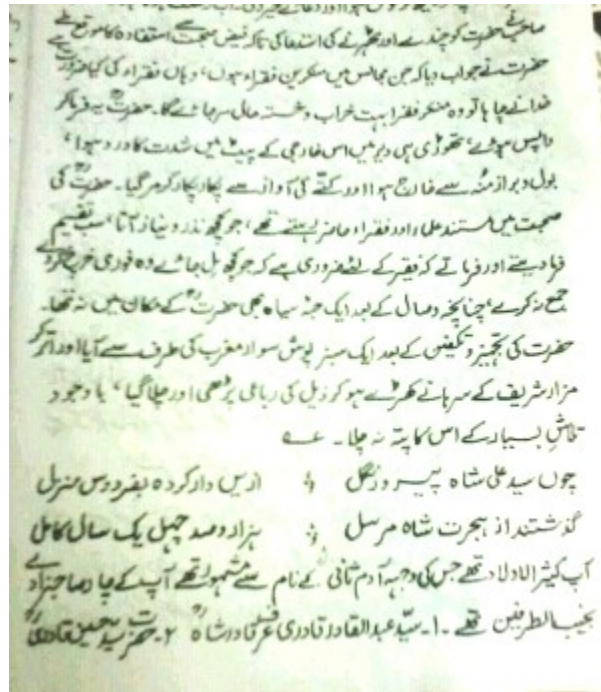 صاحب نے حضرت کو چندے اور ٹھہرنے کی استدعا کی تاکہ فیض صحبت استفادہ کا موقع ملے
حضرت نے جواب دیا کہ جن مجالس میں منکرین فقراء ہوں، وہاں فقراء کی کیا ضرورت ہے
خدا نے چاہا تو وہ منکر فقرا بہت خراب و خستہ حال مر جائے گا۔ حضرتؒ یہ فرما کر
واپس ہوئے، تھوڑی ہی دیر میں اس خارجی کے پیٹ میں شدت کا درد ہوا،
بول و براز منہ سے خارج ہوا اور کتے کی آواز سے پکار پکار کر مر گیا۔ حضرتؒ کی
صحبت میں مستند علماء اور فقراء حاضر رہتے تھے، جو کچھ نذر و نیاز آتا، سب تقسیم
فرما دیتے اور فرماتے کہ فقیر کے لئے ضروری ہے کہ جو کچھ مل جائے وہ فوری خرچ کر دے
جمع نہ کرے، چنانچہ وصال کے بعد ایک حبہ سیاہ بھی حضرتؒ کے مکان میں نہ تھا۔
حضرت کی تجہیز و تکفین کے بعد ایک سبز پوش سوار مغرب کی طرف سے آیا اور اتر کر
مزار شریف کے سرہانے کھڑے ہو کر ذیل کی رباعی پڑھی اور چلا گیا، باوجود
تلاشِ بسیار کے اس کا پتہ نہ چلا۔
چوں سید علی شاہ پیر و زگل ازیں دار کردہ بفردوس منزل
گذشتند از ہجرت شاہ مرسل ہزار و صد چہل یک سال کامل
آپ کثیر الاولاد تھے جس کی وجہ آدم ثانی کے نام سے مشہور تھے آپ کے چار صاحبزادے
نجیب الطرفین تھے۔ ۱۔ سیّد عبدالقادر قادری عرف قادر شاہؒ ۲۔ حضرت سید حسین قادریؒ